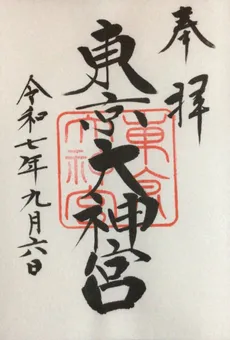 奉拝
東京大神宮
令和七年九月六日
東京大神宮